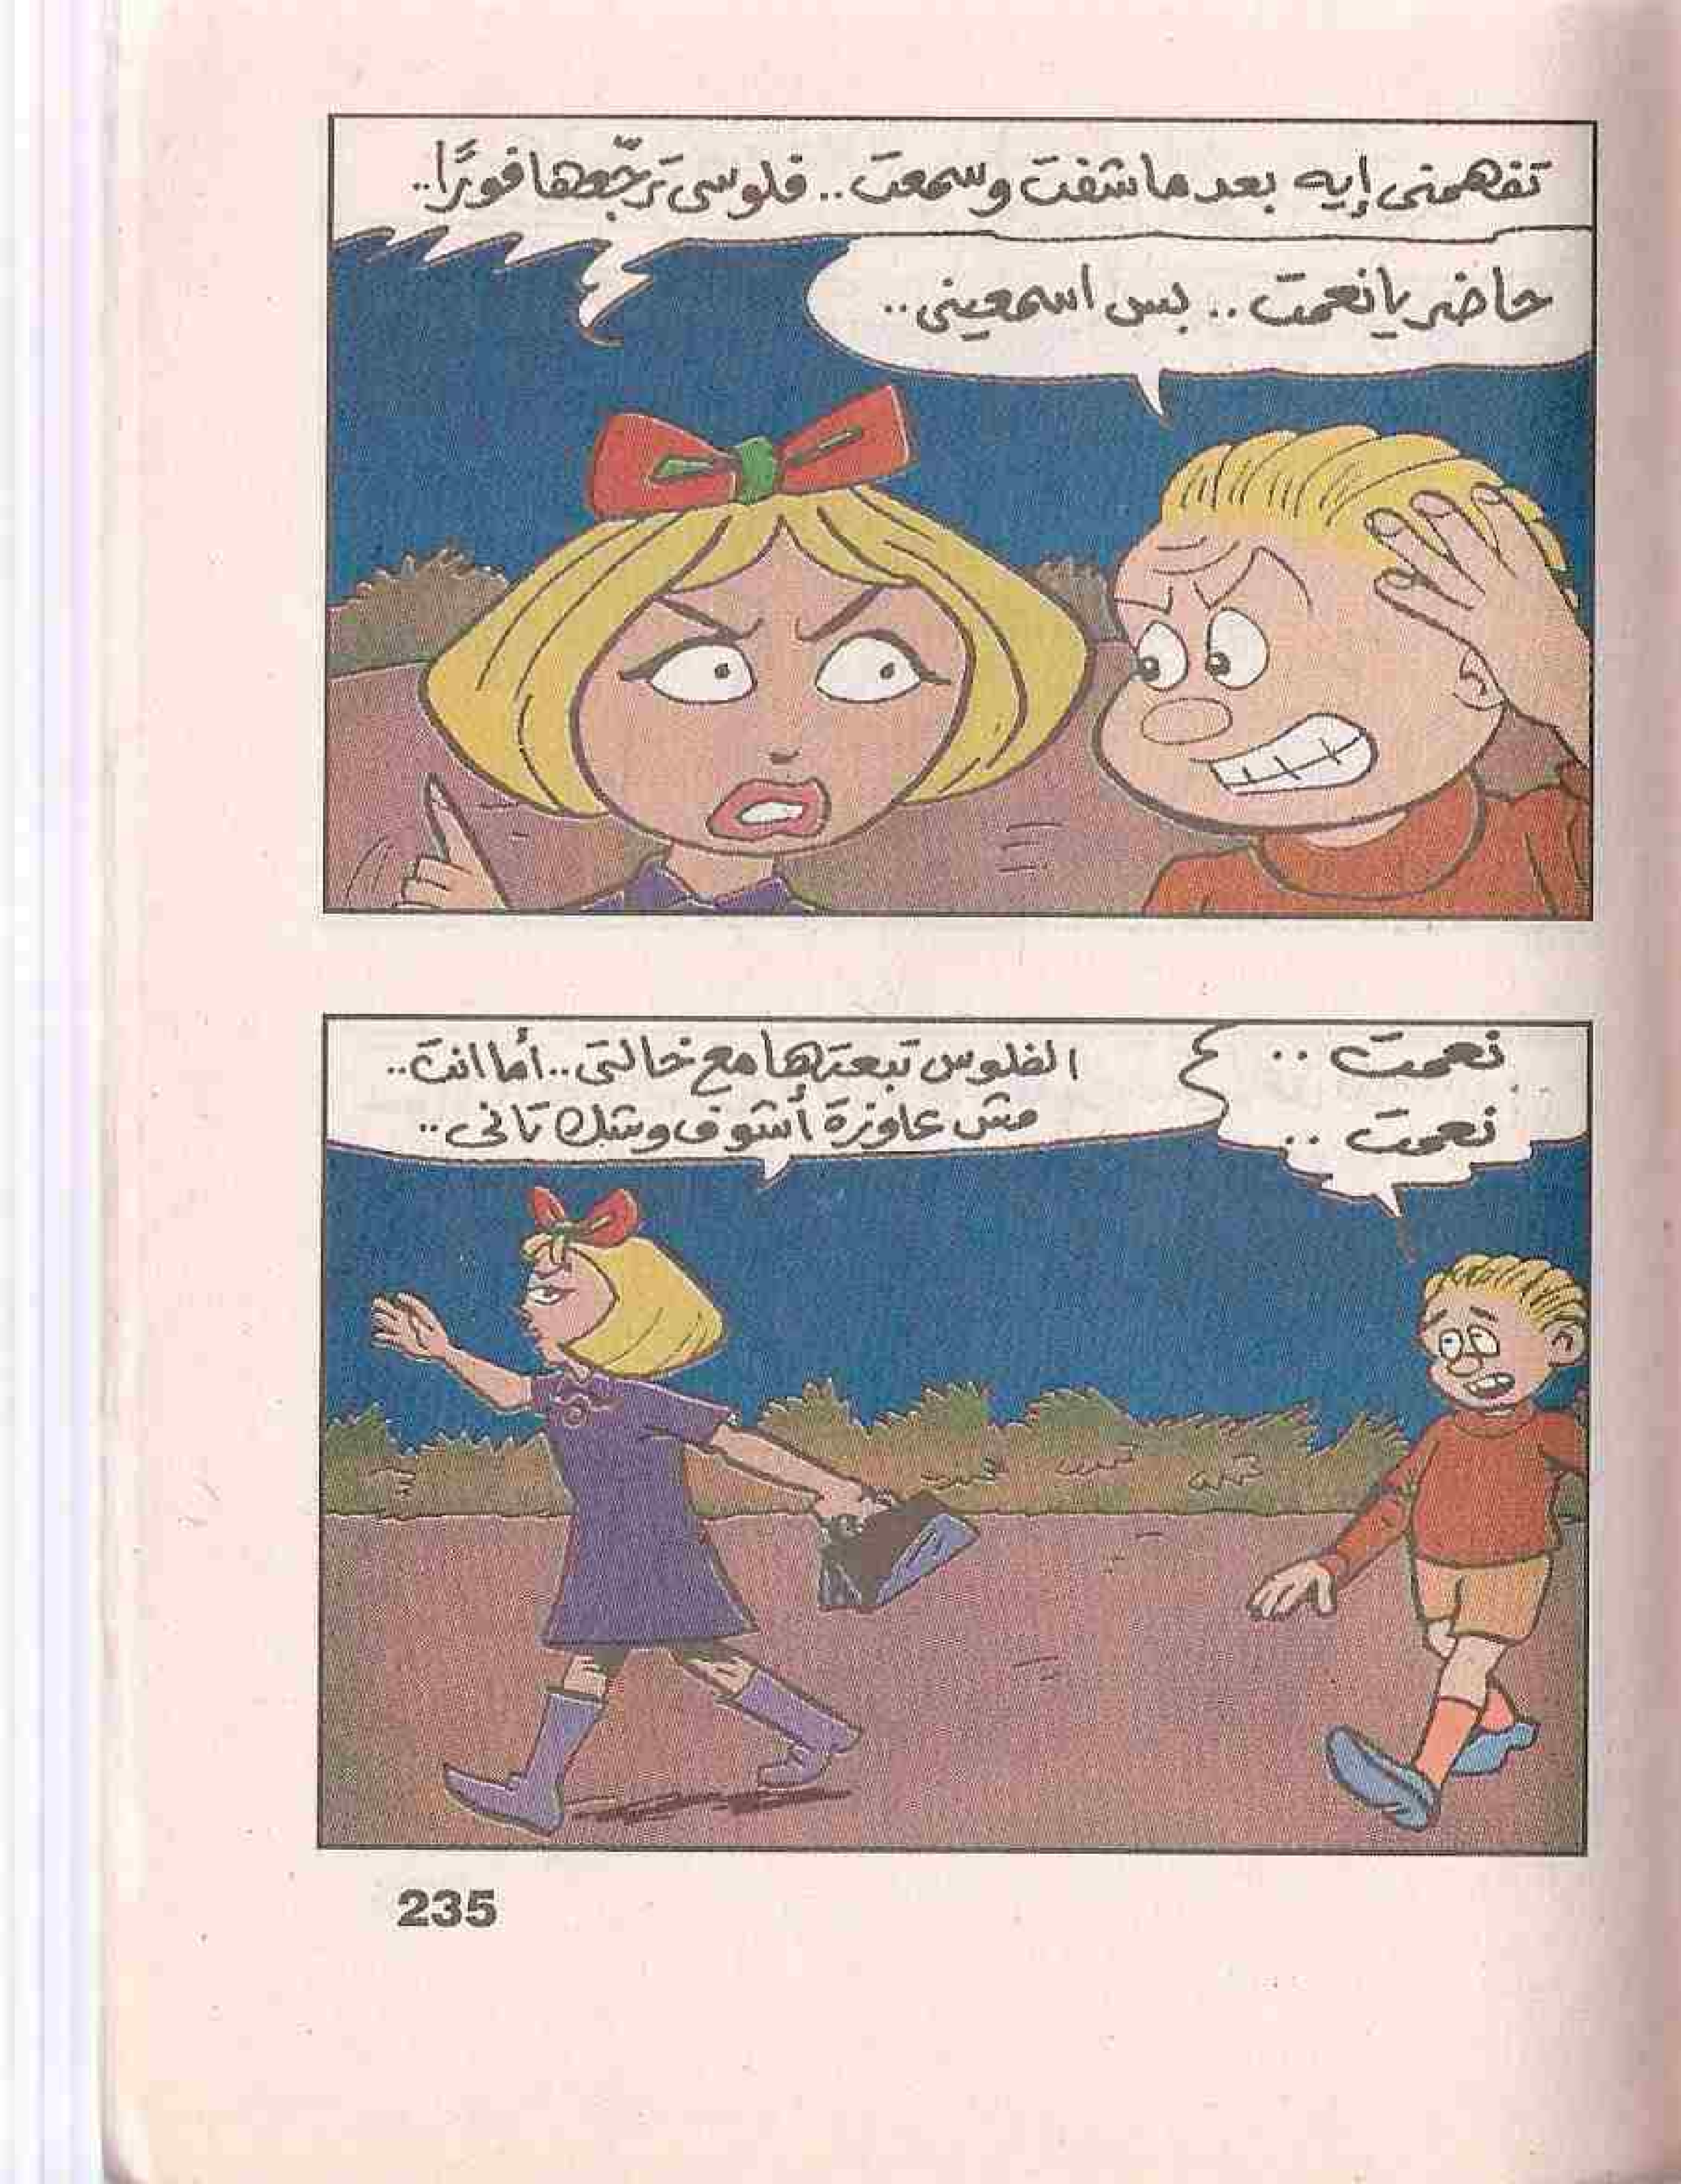 تفهمنى إيه بعد ما شفت وسمعت.. فلوسى ترجَّعها فورًا..
حاضر يا نعمت.. بس اسمعينى..
نعمت..
نعمت..
الفلوس تبعتها مع خالتى.. أما انت..
مش عاوزة أشوف وشك تانى..
235